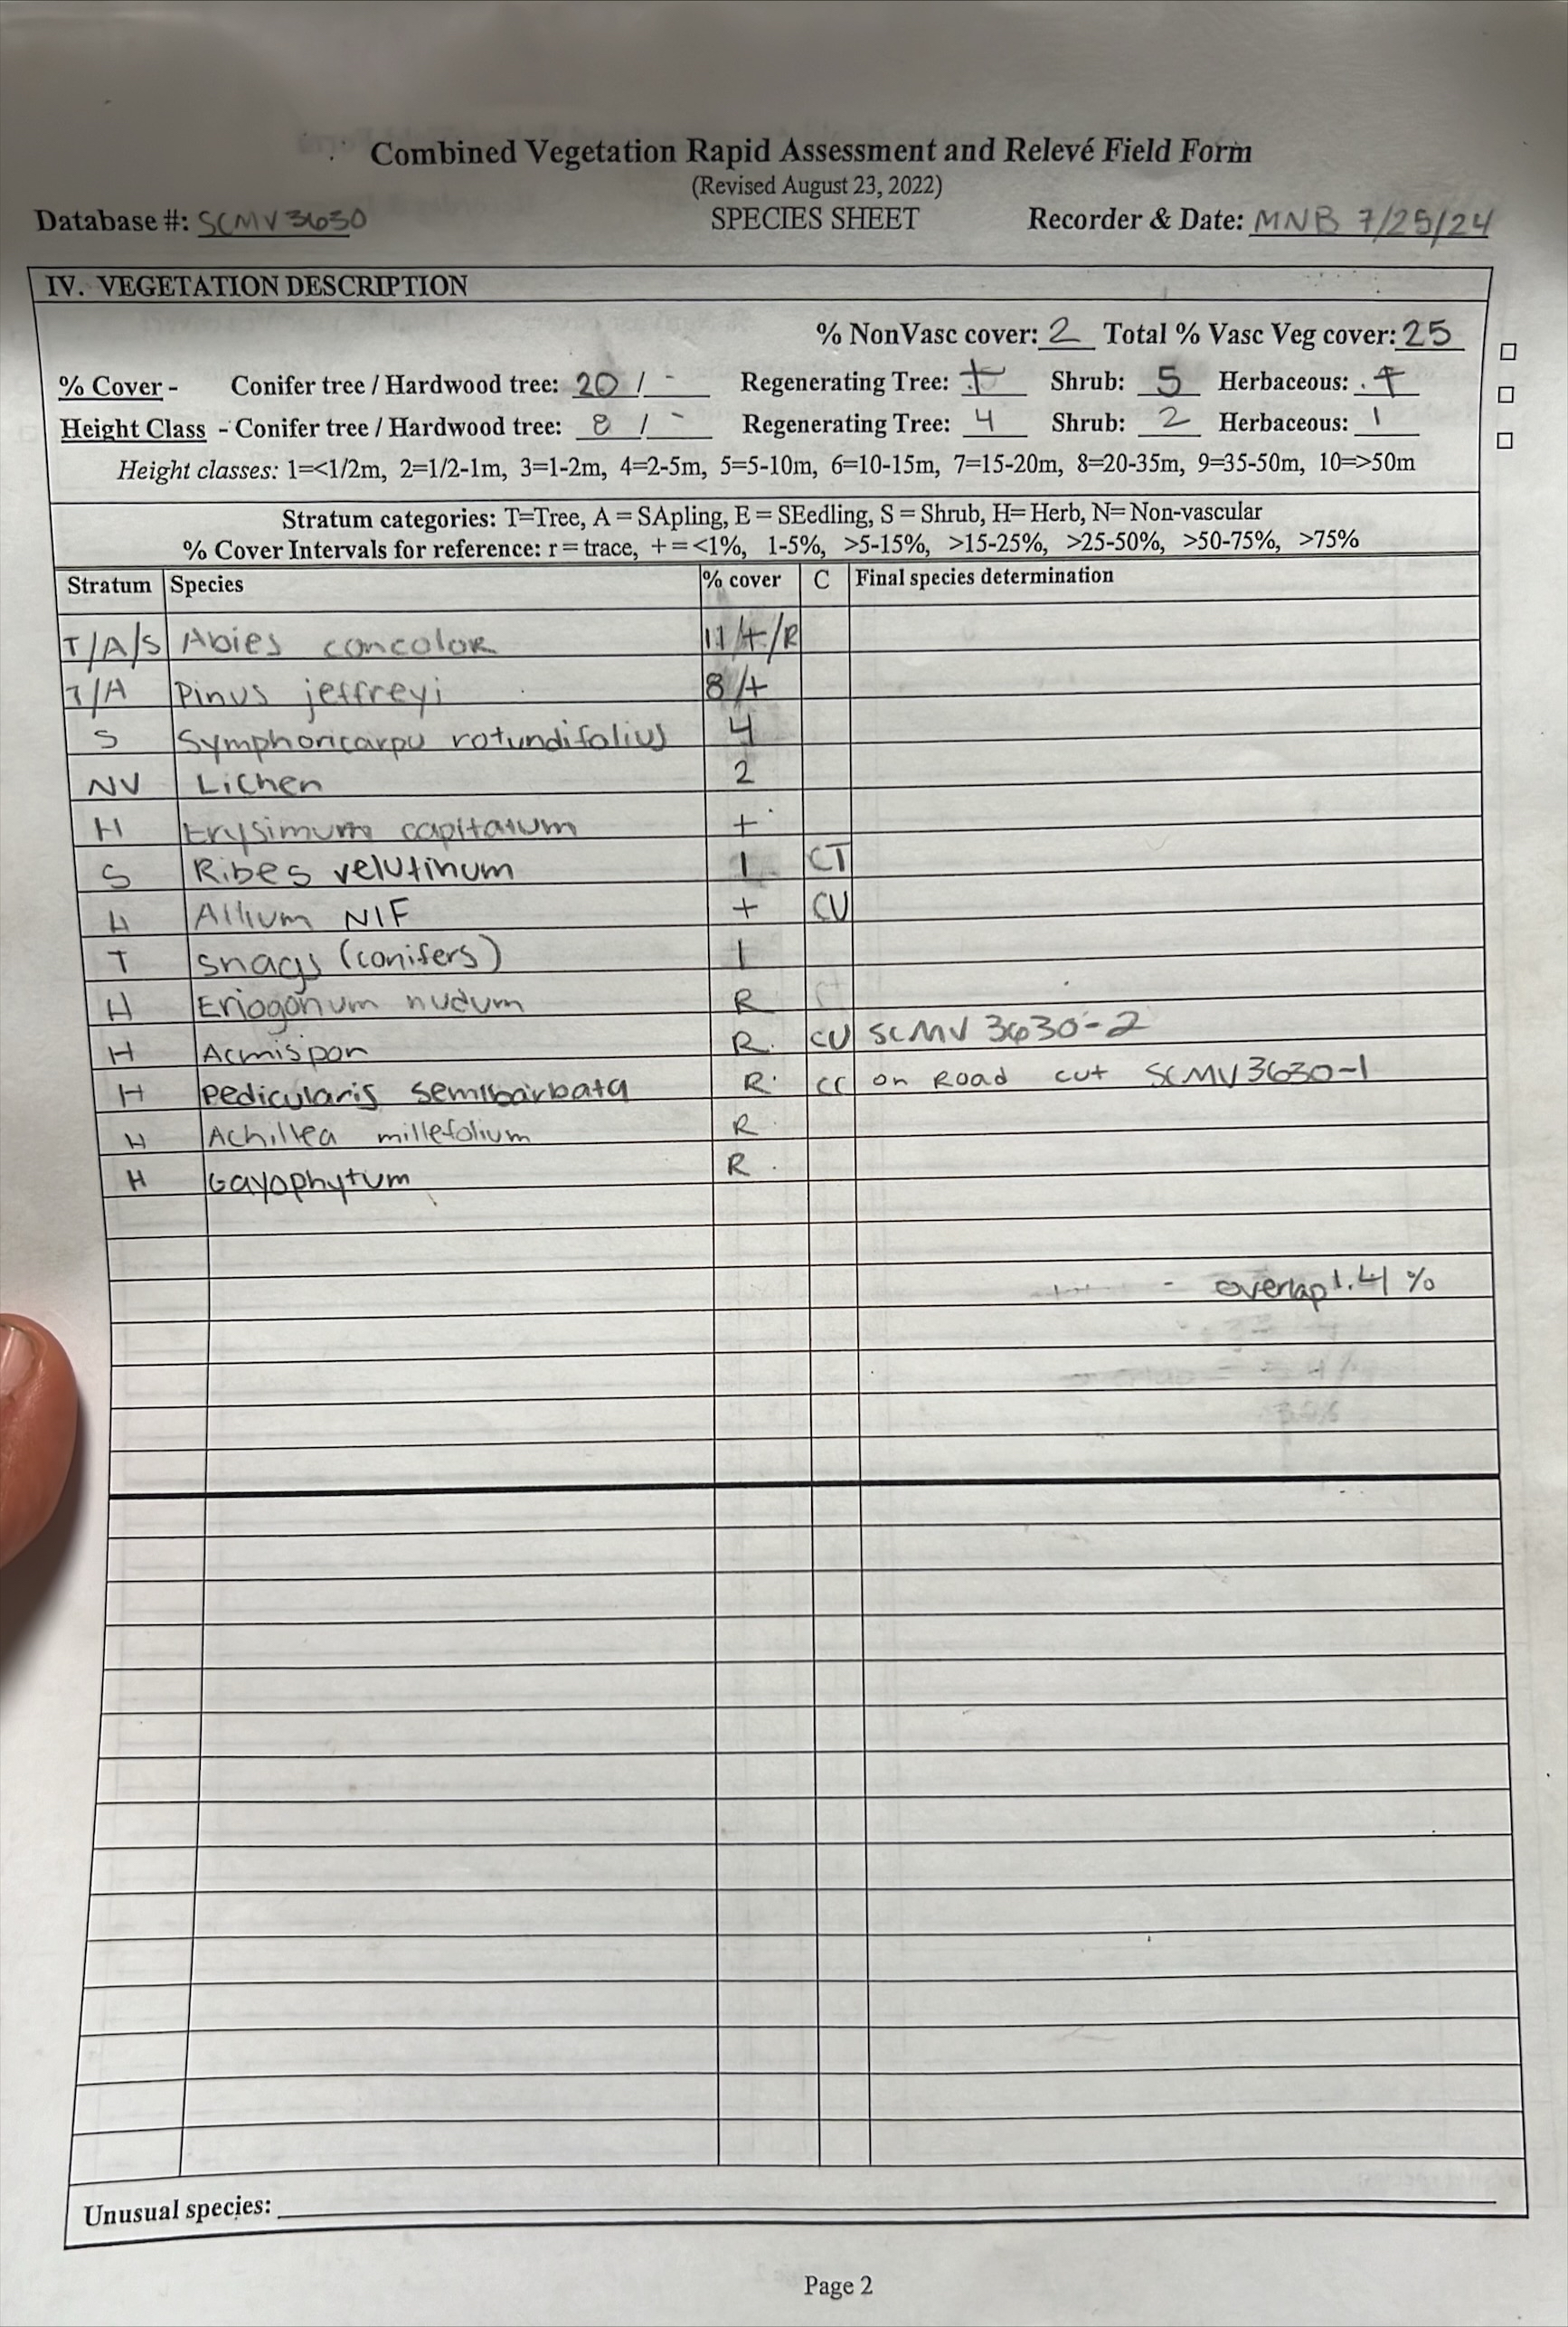 Combined Vegetation Rapid Assessment and Relevé Field Form
(Revised August 23, 2022)
Database #: SCMV3630 SPECIES SHEET Recorder & Date: MNB 7/25/24
IV. VEGETATION DESCRIPTION
% NonVasc cover: 2 Total % Vasc Veg cover: 25
% Cover - Conifer tree / Hardwood tree: 20 / - Regenerating Tree: + Shrub: 5 Herbaceous: +
Height Class - Conifer tree / Hardwood tree: 8 / - Regenerating Tree: 4 Shrub: 2 Herbaceous: 1
Height classes: 1=<1/2m, 2=1/2-1m, 3=1-2m, 4=2-5m, 5=5-10m, 6=10-15m, 7=15-20m, 8=20-35m, 9=35-50m, 10=>50m
Stratum categories: T=Tree, A = SApling, E = SEedling, S = Shrub, H= Herb, N= Non-vascular
% Cover Intervals for reference: r = trace, + = <1%, 1-5%, >5-15%, >15-25%, >25-50%, >50-75%, >75%
Stratum Species % cover C Final species determination
T/A/S Abies concolor 11/+/R
T/A Pinus jeffreyi 8/+
S Symphoricarpu rotundifolius 4
NV Lichen 2
H Erysimum capitatum +
S Ribes velutinum 1 CT
H Allium NIF + CU
T snags (conifers) 1
H Eriogonum nudum R
H Acmispon R CU SCMV 3630-2
H Pedicularis semibarbata R CC on Road cut SCMV3630-1
H Achillea millefolium R
H Gayophytum R
- overlap 1.41 %
Unusual species:
Page 2